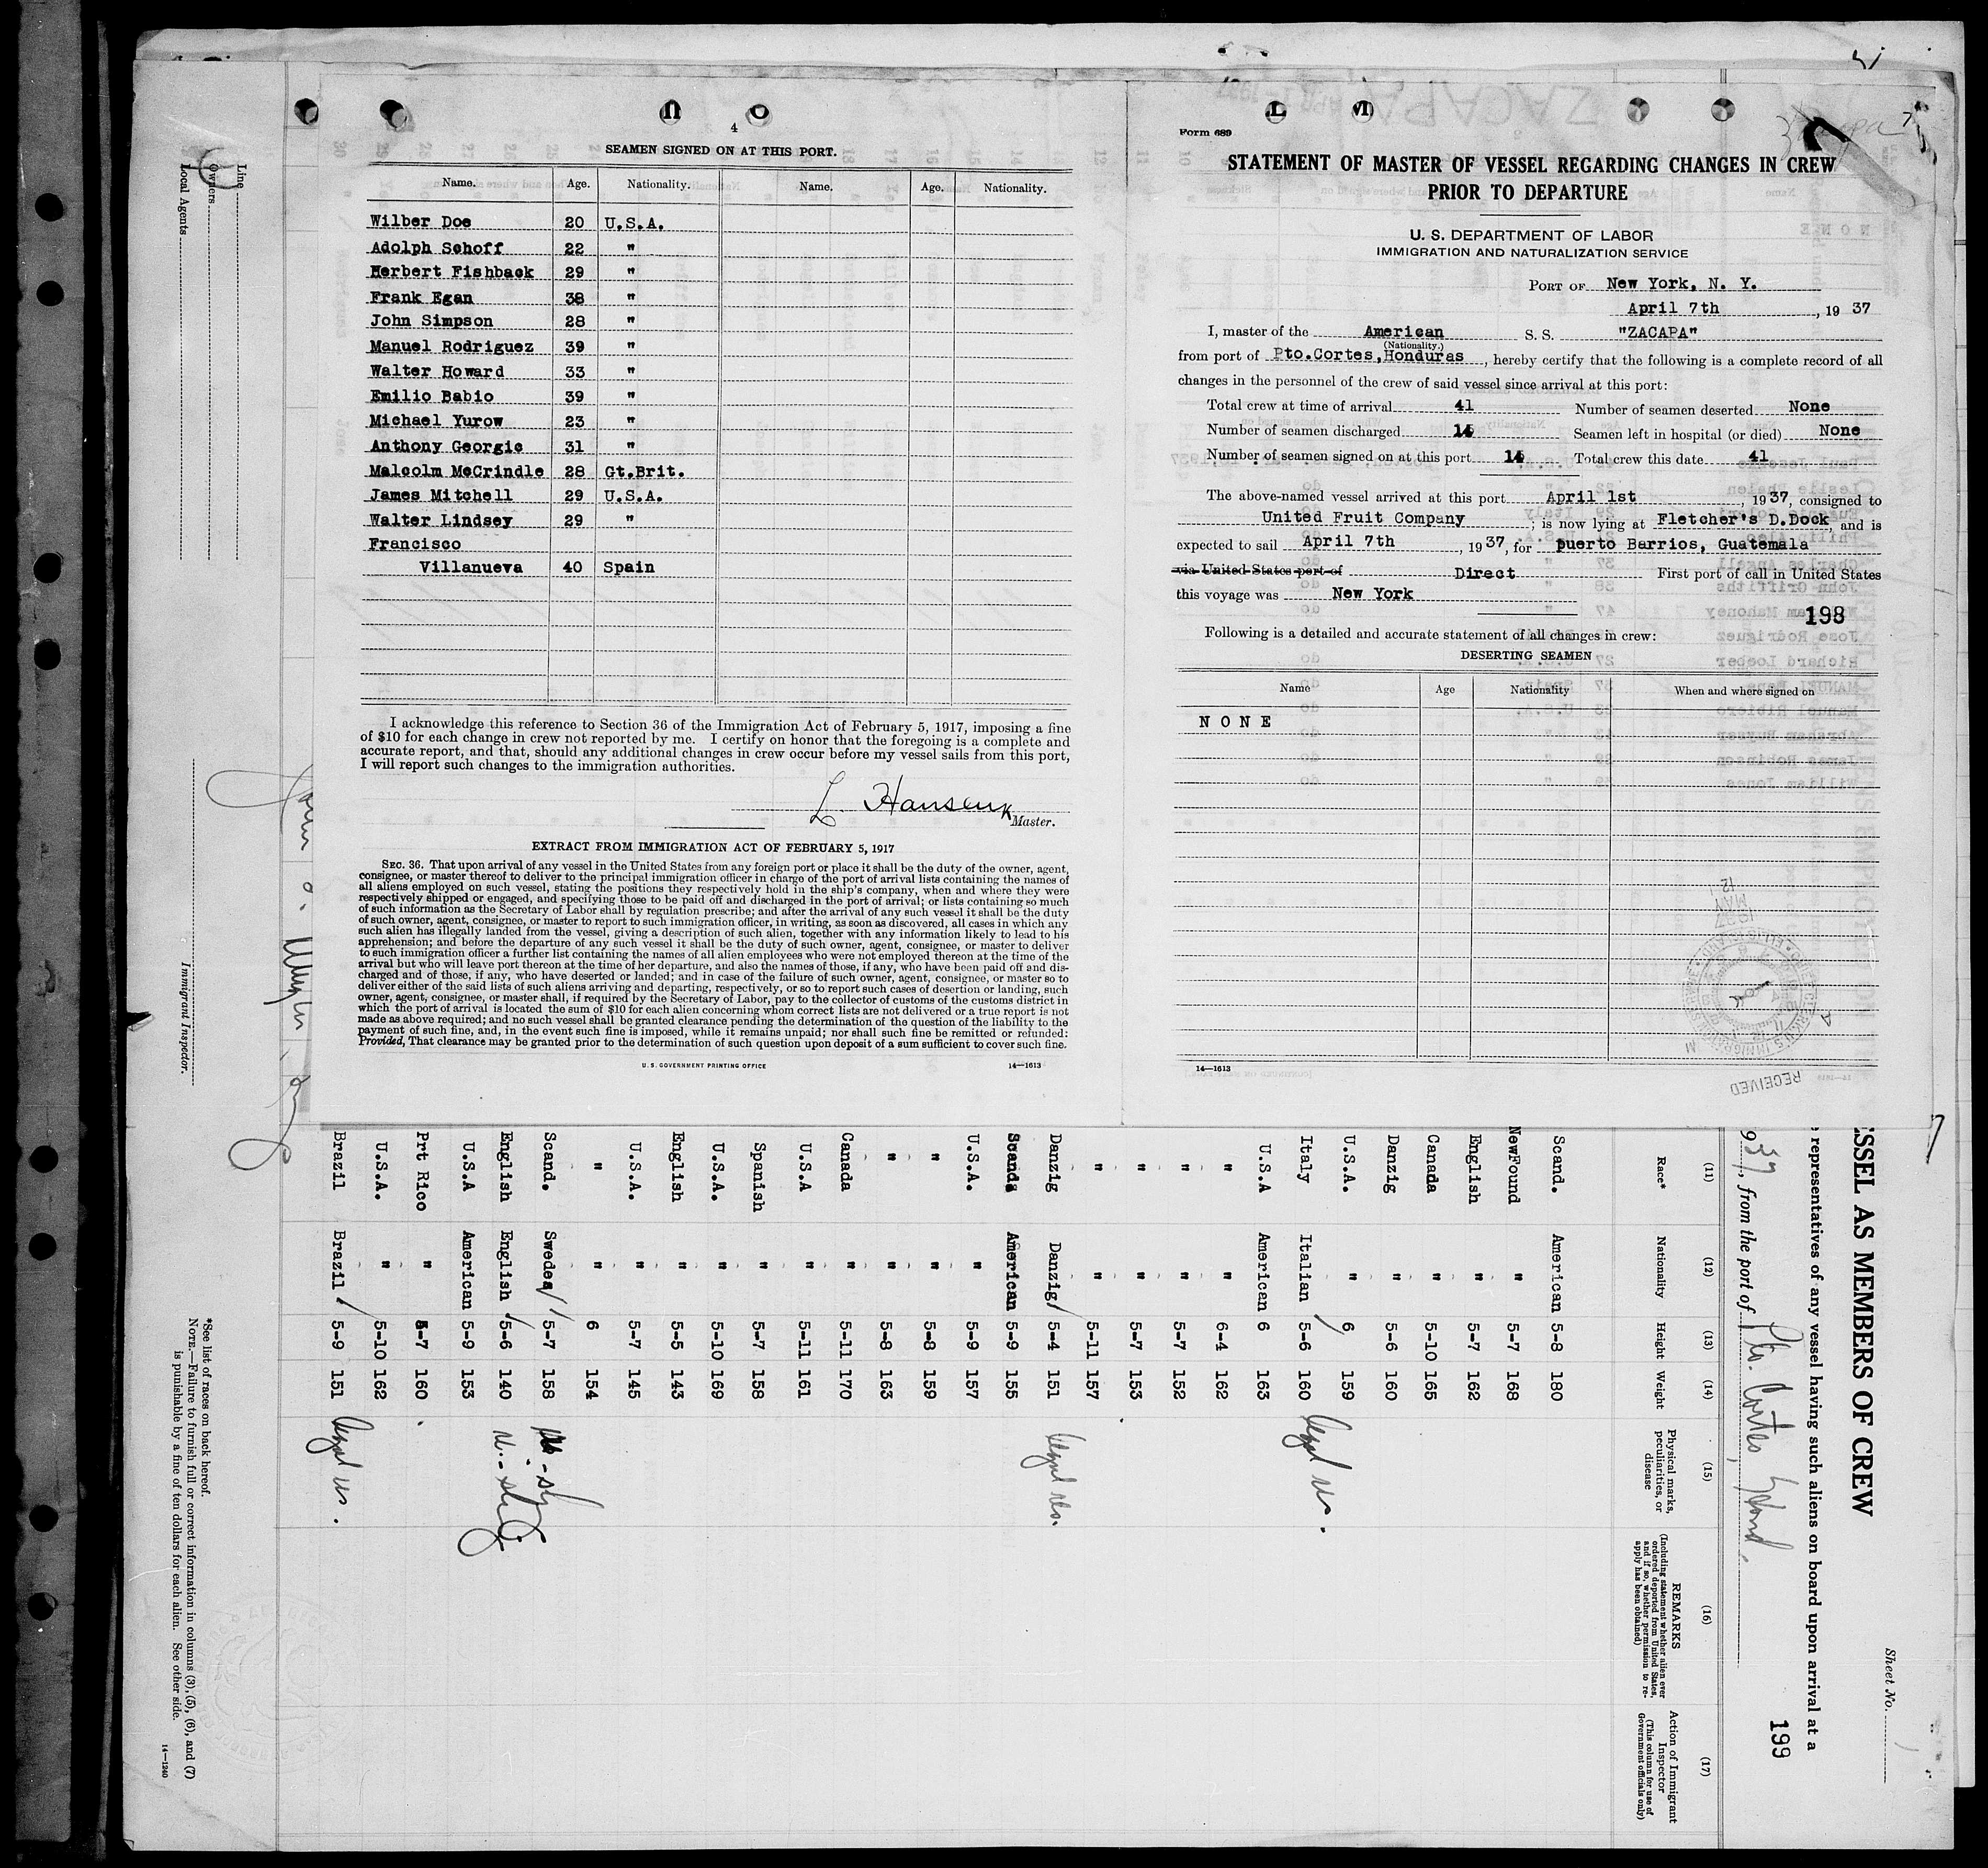 4
SEAMEN SIGNED ON AT THIS PORT.
Name. Age. Nationality. Name. Age. Nationality.
Wilber Doe 20 U.S.A.
Adolph Schoff 22 "
Herbert Fishback 29 "
Frank Egan 38 "
John Simpson 28 "
Manuel Rodriguez 39 "
Walter Howard 33 "
Emilio Babio 39 "
Michael Yurow 23 "
Anthony Georgic 31 "
Malcolm McCrindle 28 Gt.Brit.
James Mitchell 29 U.S.A.
Walter Lindsey 29 "
Francisco
Villanueva 40 Spain
I acknowledge this reference to Section 36 of the Immigration Act of February 5, 1917, imposing a fine
of $10 for each change in crew not reported by me. I certify on honor that the foregoing is a complete and
accurate report, and that, should any additional changes in crew occur before my vessel sails from this port,
I will report such changes to the immigration authorities.
L. Hansen
Master.
EXTRACT FROM IMMIGRATION ACT OF FEBRUARY 5, 1917
SEC. 36. That upon arrival of any vessel in the United States from any foreign port or place it shall be the duty of the owner, agent,
consignee, or master thereof to deliver to the principal immigration officer in charge of the port of arrival lists containing the names of
all aliens employed on such vessel, stating the positions they respectively hold in the ship's company, when and where they were
respectively shipped or engaged, and specifying those to be paid off and discharged in the port of arrival; or lists containing so much
of such information as the Secretary of Labor shall by regulation prescribe; and after the arrival of any such vessel it shall be the duty
of such owner, agent, consignee, or master to report to such immigration officer, in writing, as soon as discovered, all cases in which any
such alien has illegally landed from the vessel, giving a description of such alien, together with any information likely to lead to his
apprehension; and before the departure of any such vessel it shall be the duty of such owner, agent, consignee, or master to deliver
to such immigration officer a further list containing the names of all alien employees who were not employed thereon at the time of the
arrival but who will leave port thereon at the time of her departure, and also the names of those, if any, who have been paid off and dis-
charged and of those, if any, who have deserted or landed; and in case of the failure of such owner, agent, consignee, or master so to
deliver either of the said lists of such aliens arriving and departing, respectively, or so to report such cases of desertion or landing, such
owner, agent, consignee, or master shall, if required by the Secretary of Labor, pay to the collector of customs of the customs district in
which the port of arrival is located the sum of $10 for each alien concerning whom correct lists are not delivered or a true report is not
made as above required; and no such vessel shall be granted clearance pending the determination of the question of the liability to the
payment of such fine, and, in the event such fine is imposed, while it remains unpaid; nor shall such fine be remitted or refunded:
Provided, That clearance may be granted prior to the determination of such question upon deposit of a sum sufficient to cover such fine.
U. S. GOVERNMENT PRINTING OFFICE 14—1613
Form 689
STATEMENT OF MASTER OF VESSEL REGARDING CHANGES IN CREW
PRIOR TO DEPARTURE
U. S. DEPARTMENT OF LABOR
IMMIGRATION AND NATURALIZATION SERVICE
PORT OF New York, N. Y.
April 7th, 19 37
I, master of the American S. S. "ZACAPA"
(Nationality.)
from port of Pto.Cortes,Honduras, hereby certify that the following is a complete record of all
changes in the personnel of the crew of said vessel since arrival at this port:
Total crew at time of arrival 41 Number of seamen deserted None
Number of seamen discharged 14 Seamen left in hospital (or died) None
Number of seamen signed on at this port 14 Total crew this date 41
The above-named vessel arrived at this port April 1st, 1937, consigned to
United Fruit Company; is now lying at Fletcher's D.Dock, and is
expected to sail April 7th, 1937, for puerto Barrios, Guatemala
via United States port of Direct First port of call in United States
this voyage was New York
198
Following is a detailed and accurate statement of all changes in crew:
DESERTING SEAMEN
Name Age Nationality When and where signed on
NONE
14—1613
RECEIVED
SSEL AS MEMBERS OF CREW
Sheet No.
representatives of any vessel having such aliens on board upon arrival at a
937, from the port of Pto. Cortes, Hond.
199
(11) (12) (13) (14) (15) (16) (17)
Race* Nationality Height Weight Physical marks, peculiarities, or disease
REMARKS (Including statement whether alien ever ordered deported from United States, and if so, whether permission to re-apply has been obtained)
Action of Immigrant Inspector (This column for use of Government officials only)
Scand. American 5-8 180
NewFound " 5-7 168
English " 5-7 162
Canada " 5-10 165
Danzig " 5-6 160
U.S.A. " 6 159
Italy Italian 5-6 160
U.S.A American 6 163
" " 6-4 162
" " 5-7 152
" " 5-7 153
" " 5-11 157
Danzig Danzig 5-4 151
Scand. American 5-9 155
U.S.A. " 5-9 157
" " 5-8 159
" " 5-8 163
Canada " 5-11 170
U.S.A " 5-11 161
Spanish " 5-7 158
U.S.A. " 5-10 169
English " 5-5 143
U.S.A. " 5-7 145
" " 6 154
Scand. Sweden 5-7 158
English English 5-6 140
U.S.A American 5-9 153
Prt Rico " 5-7 160
U.S.A. " 5-10 162
Brazil Brazil 5-9 151
Line
Owners
Local Agents
Immigrant Inspector.
*See list of races on back hereof.
NOTE.—Failure to furnish full or correct information in columns (3), (5), (6), and (7)
is punishable by a fine of ten dollars for each alien. See other side.
14—1240